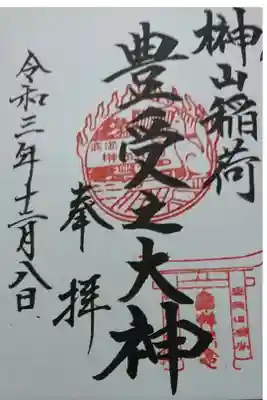 榊山稲荷
豊受之大神
奉拝
令和三年十二月八日